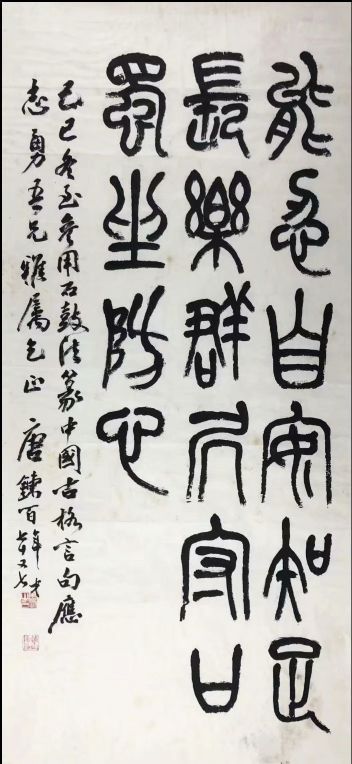 能忍自安知足
長樂群凥守口
蜀坐防心
己巳冬至參用石鼓法篆中國古格言句應
志勇吾兄雅屬乞正 唐鍊百年